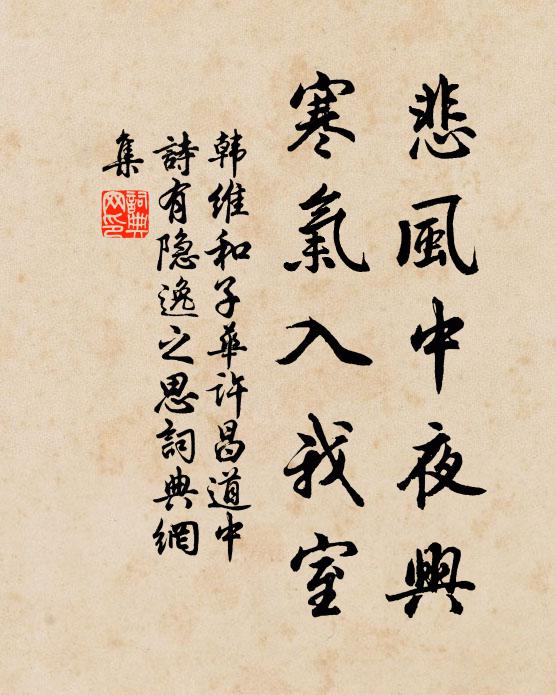 悲風中夜興
寒氣入我室
韩維和子華許昌道中
詩有隐逸之思詞典網
集
詞典
网印